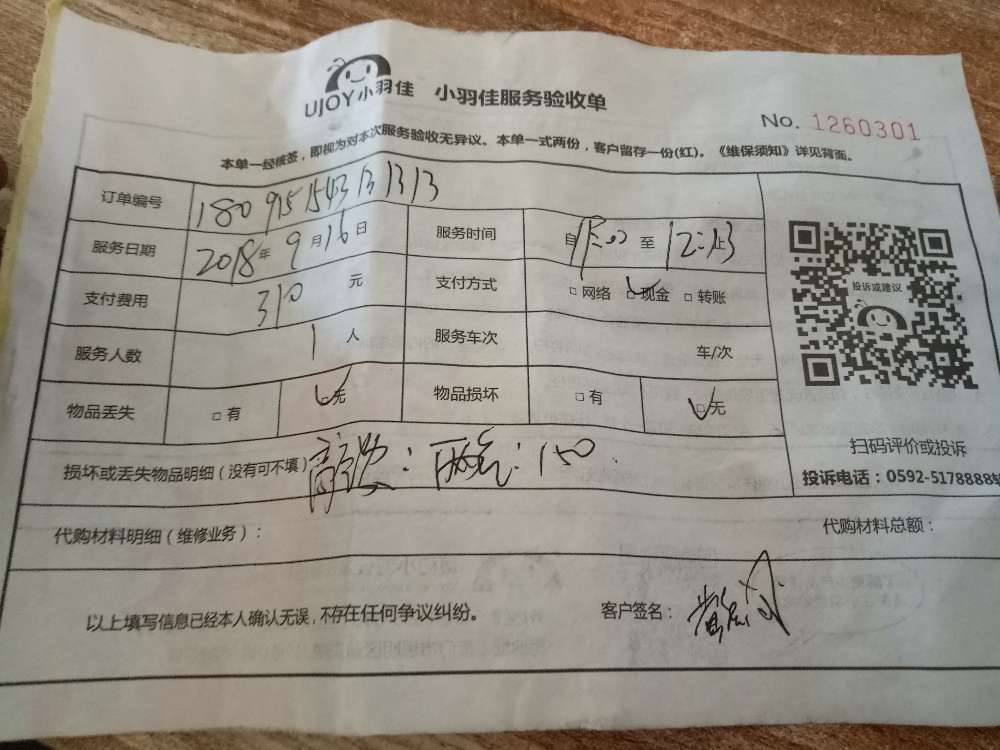 UJOY小羽佳 小羽佳服务验收单
No. 1260301
本单一经核签，即视为对本次服务验收无异议。本单一式两份，客户留存一份(红)。《维保须知》详见背面。
订单编号
服务日期 2018年9月16日 服务时间 自 至 12:13止
支付费用 310元 支付方式 □网络 □现金 □转账
服务人数 1人 服务车次 车/次
物品丢失 □有 □无 物品损坏 □有 □无
投诉或建议
扫码评价或投诉
投诉电话：0592-5178888转
损坏或丢失物品明细（没有可不填） ：150
代购材料明细（维修业务）： 代购材料总额：
以上填写信息已经本人确认无误，不存在任何争议纠纷。 客户签名：